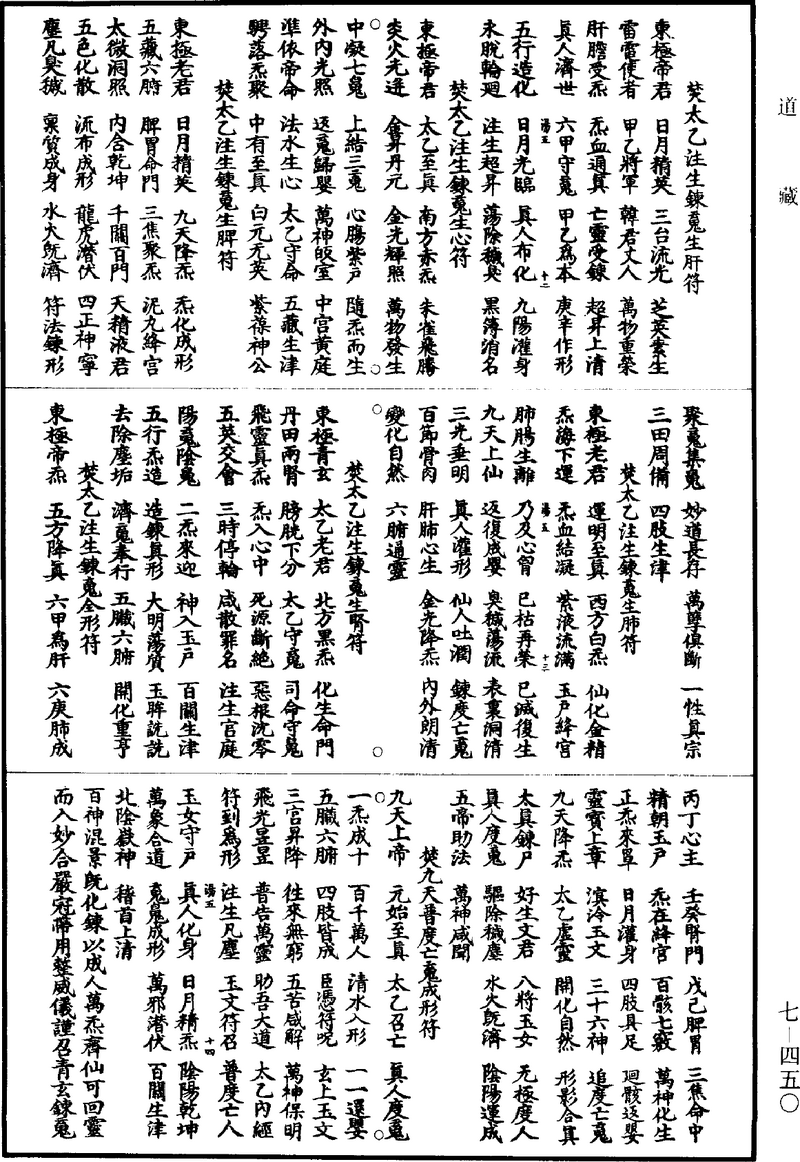 道藏
焚太乙注生鍊䰟生肝符
東極帝君 日月精英 三台流光 芝英素生
雷霆使者 甲乙將軍 韓君丈人 萬物重榮
肝膽受炁 炁血通真 亡靈受鍊 超昇上清
真人濟世 六甲守䰟 甲乙為本 庚辛作形
湯五 十二
五行造化 日月光臨 真人布化 九陽灌身
永脫輪迴 注生超昇 蕩除穢臭 黑簿消名
焚太乙注生鍊䰟生心符
東極帝君 太乙至真 南方赤炁 朱雀飛騰
炎火光迸 金昇丹元 金光輝照 萬物發生
中凝七䰟 上結三䰟 心腸紫戶 隨炁而生
外內光照 返䰟歸嬰 萬神皈室 中宮黃庭
準依帝命 法水生心 太乙守命 五藏生津
騁落炁聚 中有至真 白元无英 紫葆神公
焚太乙注生鍊䰟生脾符
東極老君 日月精英 九天降炁 炁化成形
五藏六腑 脾胃命門 三焦聚炁 泥丸絳宮
太微洞照 內含乾坤 千關百門 天精液君
五色化散 流布成形 龍虎潛伏 四正神寧
塵凡臭穢 稟質成身 水火既濟 符法鍊形
聚䰟集䰟 妙道長存 萬孽俱斷 一性真宗
三田周備 四肢生津
焚太乙注生鍊䰟生肺符
東極老君 運明至真 西方白炁 仙化金精
炁海下運 炁血結凝 紫液流滿 玉戶絳宮
湯五 十三
肺腸生離 乃及心胃 已枯再榮 已滅復生
九天上仙 返復成嬰 臭穢蕩流 表裏洞清
三光垂明 真人灌形 仙人吐潤 鍊度亡䰟
百節骨肉 肝肺心生 金光降炁 內外朗清
變化自然 六腑通靈
焚太乙注生鍊䰟生腎符
東極青玄 太乙老君 北方黑炁 化生命門
丹田兩腎 膀胱下分 太乙守䰟 司命守䰟
飛靈真炁 炁入心中 死源斷絕 惡根洗零
五英交會 三時停輪 咸散罪名 注生官庭
陽䰟陰䰟 二炁來迎 神入玉戶 百關生津
五行炁造 造鍊真形 大明蕩質 玉眸詵詵
去除塵垢 濟䰟奉行 五臟六腑 開化重亨
焚太乙注生鍊䰟全形符
東極帝炁 五方降真 六甲為肝 六庚肺成
丙丁心主 壬癸腎門 戊己脾胃 三焦命中
精朝玉戶 炁在絳宮 百骸七竅 萬神化生
正炁來單 日月灌身 四肢具足 迴骸返嬰
靈寶上章 溟泠玉文 三十六神 追度亡䰟
九天降炁 太乙虛靈 開化自然 形影合真
太真鍊尸 好生文君 八將玉女 无極度人
真人度䰟 驅除穢塵 水火既濟 陰陽運成
五帝助法 萬神咸聞
焚九天普度亡䰟成形符
九天上帝 元始至真 太乙召亡 真人度䰟
一炁成十 百千萬人 清水入形 一一還嬰
五臟六腑 四肢皆成 臣憑符呪 玄上玉文
三宮昇降 往來無窮 五苦咸解 萬神保明
飛光昱昱 普告萬靈 助吾大道 太乙內經
符到為形 注生凡塵 玉文符召 普度亡人
湯五 十四
玉女守戶 真人化身 日月精炁 陰陽乾坤
萬象合道 䰟䰟成形 萬邪潛伏 百關生津
北陰嶽神 稽首上清
百神混景既化鍊以成人萬炁齊仙可回靈
而入妙合嚴冠幬用整威儀謹召青玄鍊䰟
七—四五〇